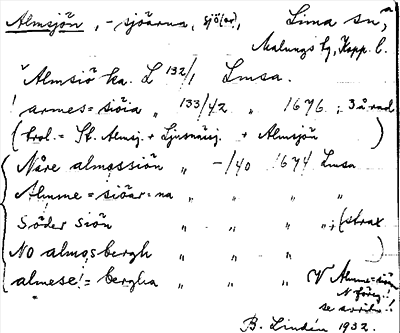 Almsjön, -sjöarna, sjö(ar), Lima sn,
Malungs tg, Kopp. l.
Almsiö ka. L 132/1 Lmsa.
! armes=siöia " 133/42 " 1676 ; 3 å rad
(trol. = St. Almsj. + Ljusnäsj. + Almsjön )
Nåre almossiön " -/40 1674 Lmsa
Almme=siöar=na " " " "
Söder siön " " " " ; (strax
NO almosbergh " " " )
almese!= bergha " " " V Almme=siön
N föreg.!
se avritn!
B. Lindén 1932.